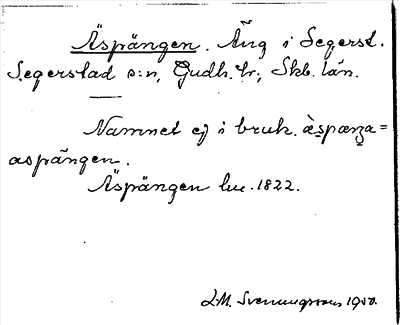 Äspängen. Äng i Segerst.
Segerstad s:n, Gudh. hr, Skb. län.
Namnet ej i bruk. àspæŋa =
aspängen.
Äspängen lue. 1822.
L.M. Svenungsson 1950.